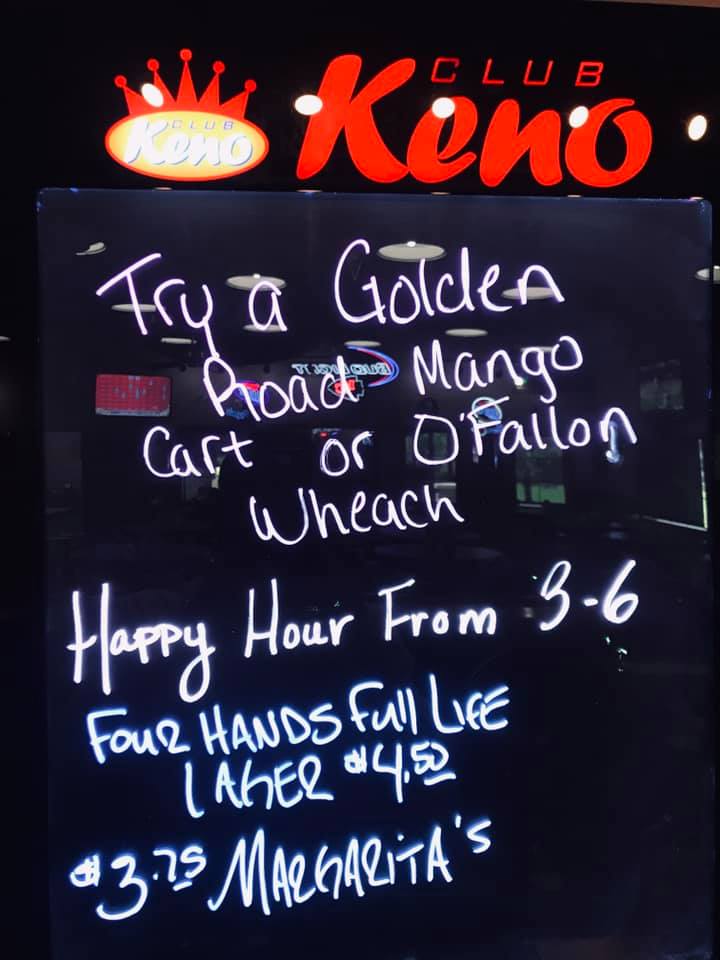 CLUB
Keno
CLUB
Keno
Try a Golden
Road Mango
Cart or O'Fallon
Wheach
Happy Hour From 3-6
Four HANDS Full LIFE
LAGER $4.50
$3.75 MARGARITA'S